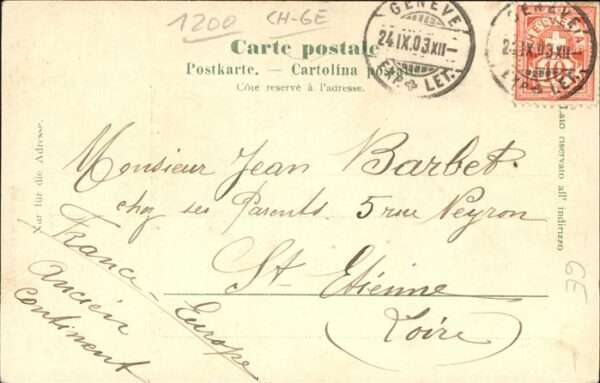 1200 CH-GE
GENÈVE
24.IX.03.XII—
EXP. LET.
GENÈVE
24.IX.03.XII—
EXP. LET.
HELVETIA
10
Carte postale
Postkarte. — Cartolina
Côté réservé à l'adresse.
Nur für die Adresse.
Lato riservato all' indirizzo
Monsieur Jean Barbet.
chez ses Parents. 5 rue Neyron
St Etienne
(Loire)
France - Europe
Ancien
Continent
GE